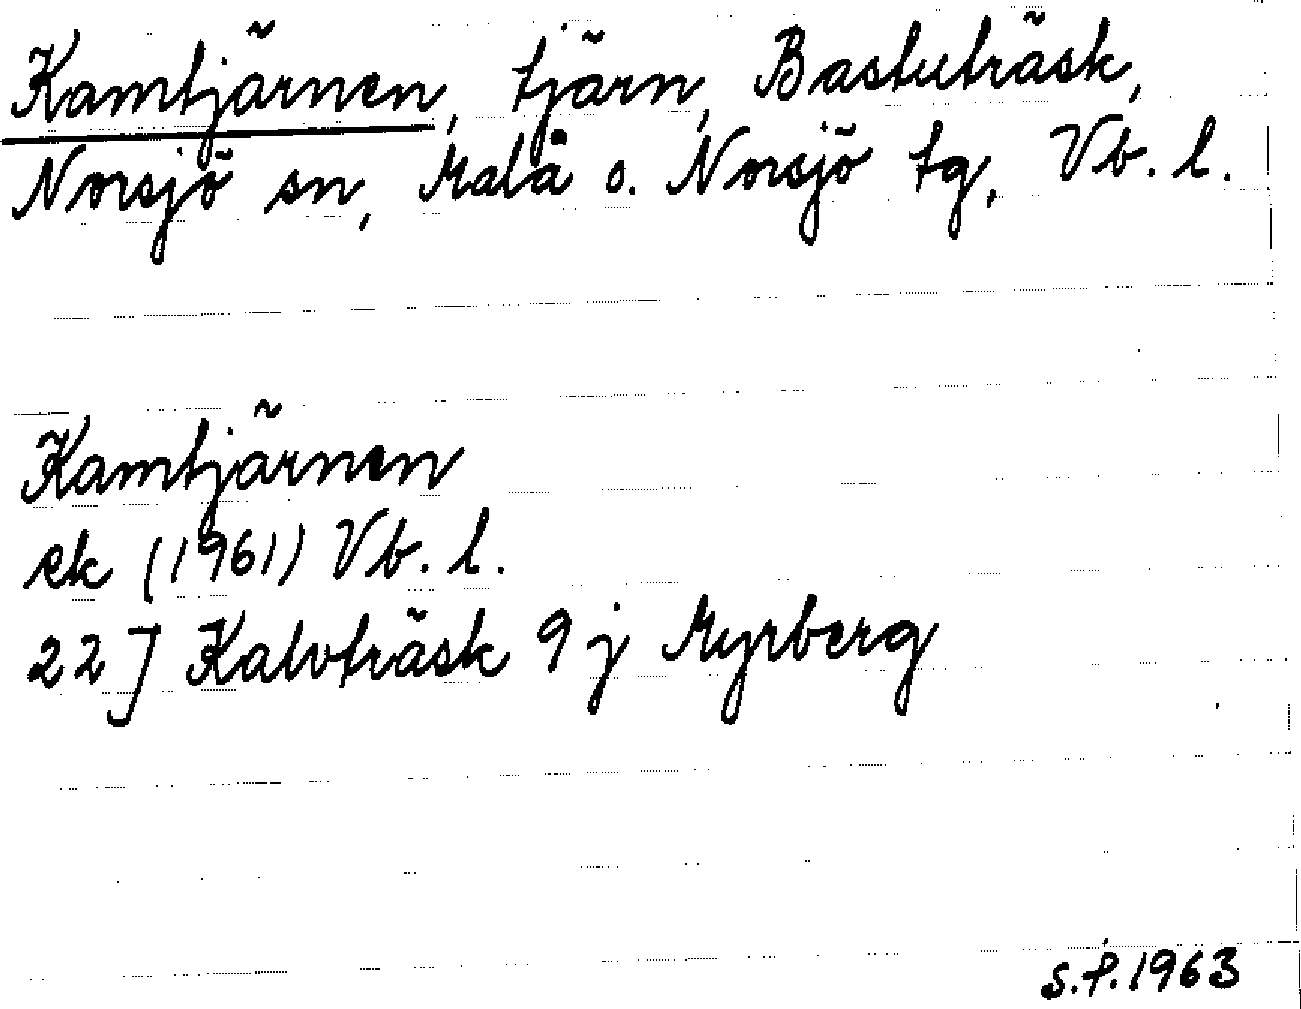 Kamtjärnen, tjärn, Bastuträsk,
Norsjö sn, Malå o. Norsjö tg, Vb. l.
Kamtjärnen
ek (1961) Vb. l.
22 J Kalvträsk 9 j Myrberg
S.P. 1963